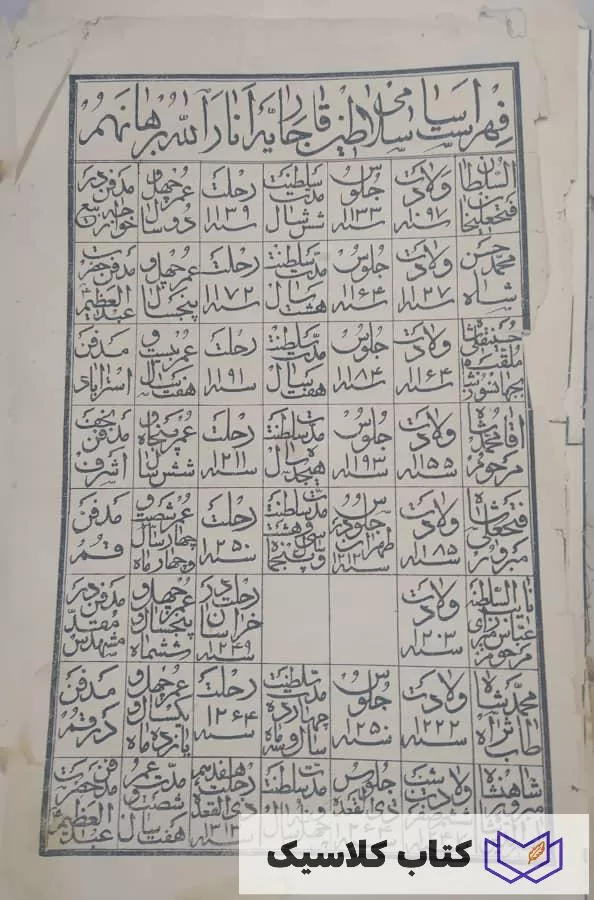 فهرست اسامی سلاطین قاجاریه انار الله برهانهم
السلطان فتحعلیخان ولادت سنه ۱۰۹۷ جلوس سنه ۱۱۳۳ مدت سلطنت شش سال رحلت سنه ۱۱۳۹ عمر چهل و دو سال مدفن در خواجه ربیع
محمد حسن شاه ولادت سنه ۱۱۲۷ جلوس سنه ۱۱۶۴ مدت سلطنت هشت سال رحلت سنه ۱۱۷۲ عمر چهل و پنج سال مدفن حضرت عبدالعظیم
حسینقلی شاه ملقب بجهانسوز شاه ولادت سنه ۱۱۶۴ جلوس سنه ۱۱۸۴ مدت سلطنت هفت سال رحلت سنه ۱۱۹۱ عمر بیست و هفت سال مدفن استراباد
اقا محمد شاه مرحوم ولادت سنه ۱۱۵۵ جلوس سنه ۱۱۹۳ مدت سلطنت هیجده سال رحلت سنه ۱۲۱۱ عمر پنجاه و شش سال مدفن نجف اشرف
فتحعلی شاه مبرور ولادت سنه ۱۱۸۵ جلوس در طهران سنه ۱۲۱۲ مدت سلطنت سی و هشت و پنجماه رحلت سنه ۱۲۵۰ عمر شصت و چهار سال و چهار ماه مدفن قم
نایب السلطنه عباس میرزای مرحوم ولادت سنه ۱۲۰۳ رحلت در خراسان سنه ۱۲۴۹ عمر چهل و پنجسال و ششماه مدفن در مشهد مقدس
محمد شاه طاب ثراه ولادت سنه ۱۲۲۲ جلوس سنه ۱۲۵۰ مدت سلطنت چهارده سال و سه ماه رحلت سنه ۱۲۶۴ عمر چهل و یکسال و یازده ماه مدفن در قم
شاهنشاه مبرور ولادت شب جلوس ذی القعده مدت سلطنت رحلت هفدهم ذی القعده ۱۳۱۳ مدت عمر شصت و هفت سال مدفن حضرت عبدالعظیم
کتاب کلاسیک